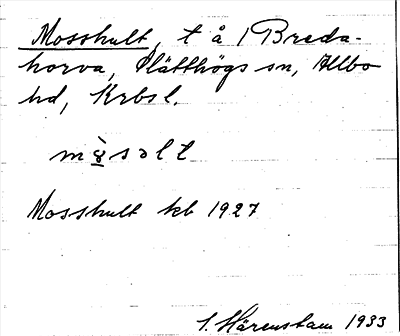 Mosshult, t å 1 Breda-
horva, Slätthögs sn, Allbo
hd, Krbs l.
mòsəlt
Mosshult kb 1927
S. Härenstam 1933